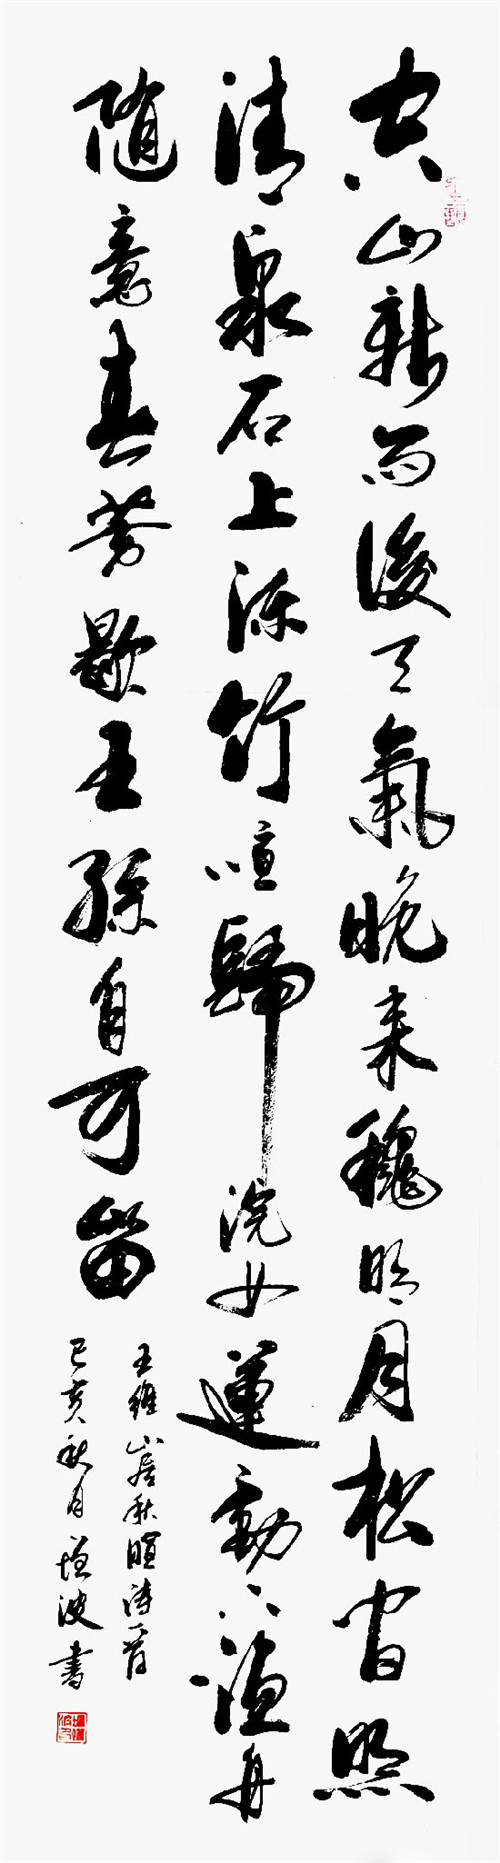 空山新雨後天氣晚来穐明月松間照
清泉石上流竹喧歸浣女蓮動下漁舟
隨意春芳歇王孫自可留
王維山居秋暝詩一首
己亥秋月波書